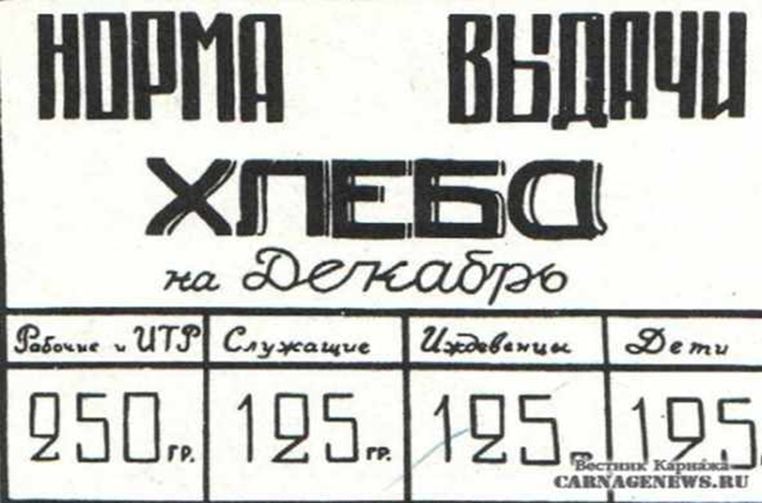 НОРМА ВЫДАЧИ
ХЛЕБА
на Декабрь
Рабочие и ИТР Служащие Иждевенцы Дети
250 гр. 125 гр. 125 гр. 125
Вестник Карнажа
CARNAGENEWS.RU